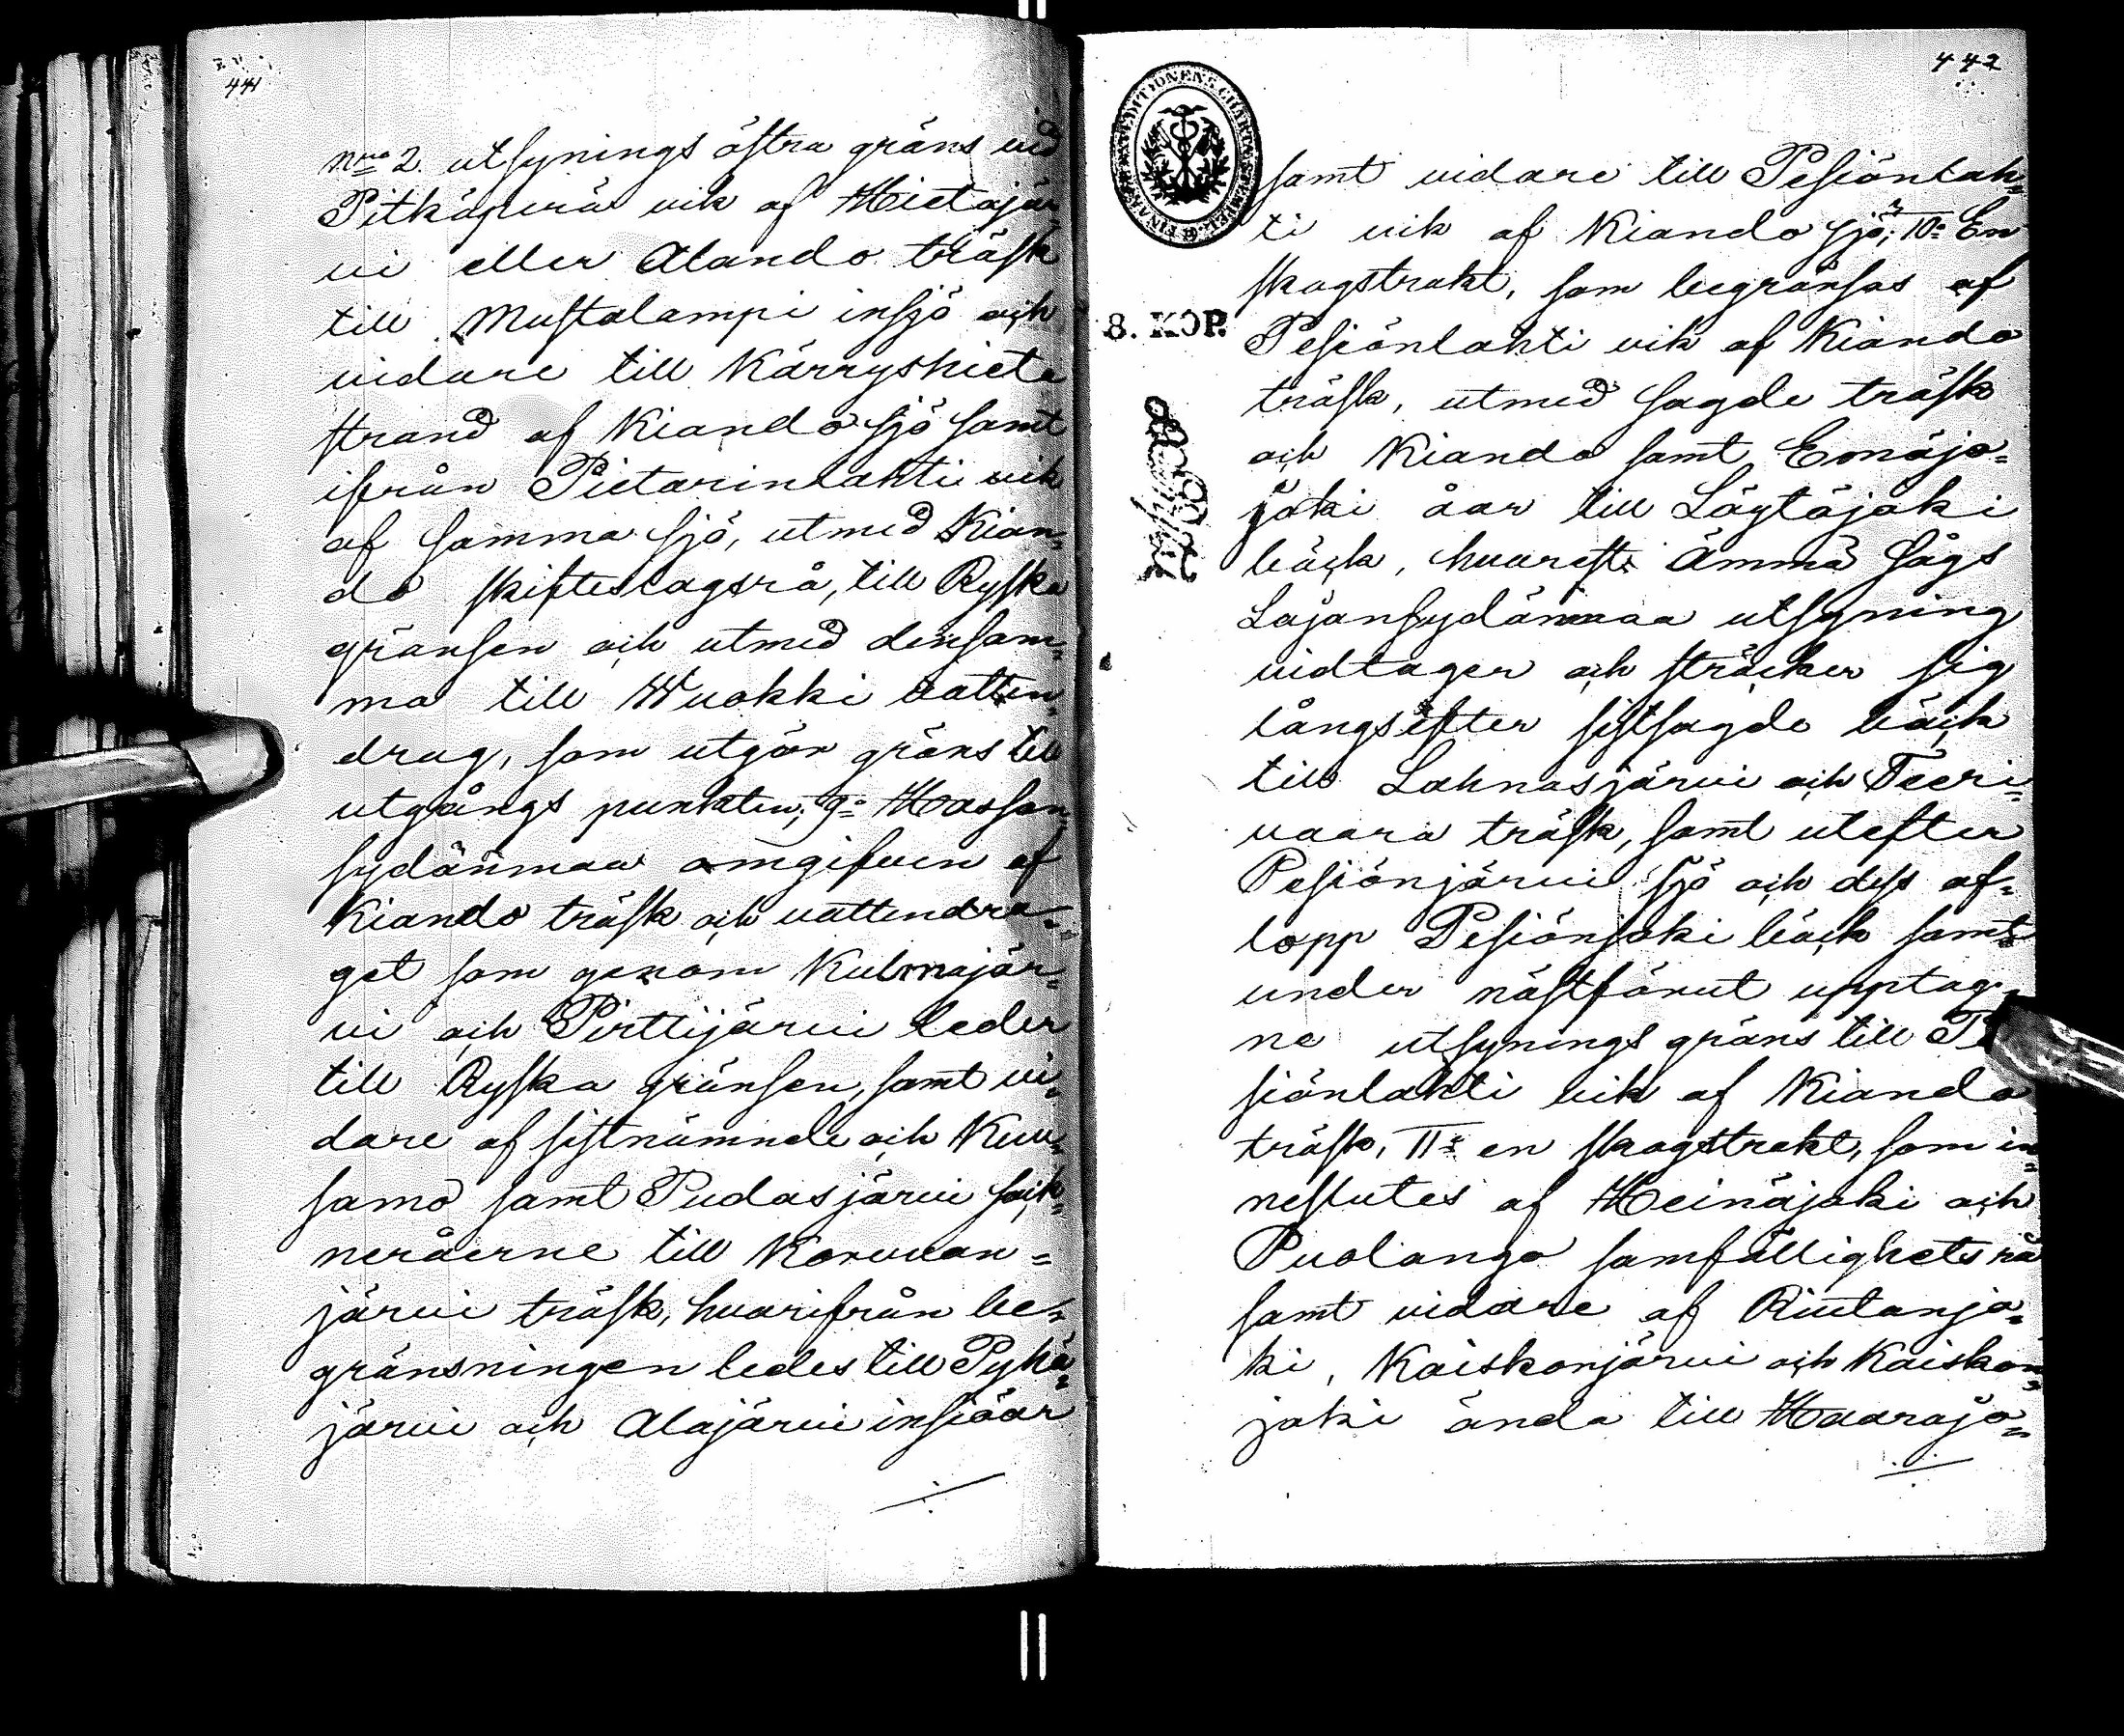 441
Nro 2. utsynings östra gräns vid
Pitkäperä vik af Hietajär-
vi eller Alando träsk
till Mustalampi insjö och
vidare till Kärryskieta
strand af Kiando sjö samt
ifrån Pietarinlahti vik
af samma sjö, utmed Kian-
do skifteslagsrå, till Ryska
gränsen och utmed densam-
ma till Wuokki vatten-
drag, som utgör gräns till
utgångs punkten; 9o Hossan-
sydänmaa omgifven af
Kiando träsk och vattendra-
get som genom Kulmajär-
vi och Pirttijärvi leder
till Ryska gränsen, samt vi-
dare af sistnämnde och Kuu-
samo samt Pudasjärvi sock-
neråerne till Korvuan-
järvi träsk, hvarifrån be-
gränsningen ledes till Pyhä-
järvi och Alajärvi insjöar
442
FINANS EXPEDITIONENS CHARTÆ STEMPEL
8. KOP.
samt vidare till Pesiönlah-
ti vik af Kiando sjö; 10o En
skogstrakt, som begränsas af
Pesiönlahti vik af Kiando
träsk, utmed sagde träsk
och Kiando samt Emäjo-
joki åar till Löytöjoki
bäck, hvarest Ämmä sågs
Lajansydänmaa utsyning
vidtager och sträcker sig
långsefter sistsagde bäck
till Lahnasjärvi och Teeri-
vaara träsk, samt utefter
Pesiönjärvi sjö och dess af-
lopp Pesiönjoki bäck samt
under nästförut upptag-
ne utsynings gräns till
siönlahti vik af Kiando
träsk, 11o en skogstrakt, som in-
neslutes af Heinäjoki och
Puolango samfällighets rå
samt vidare af Rintanjo-
ki, Kaiskonjärvi och Kaiskon-
joki ända till Haarajo-